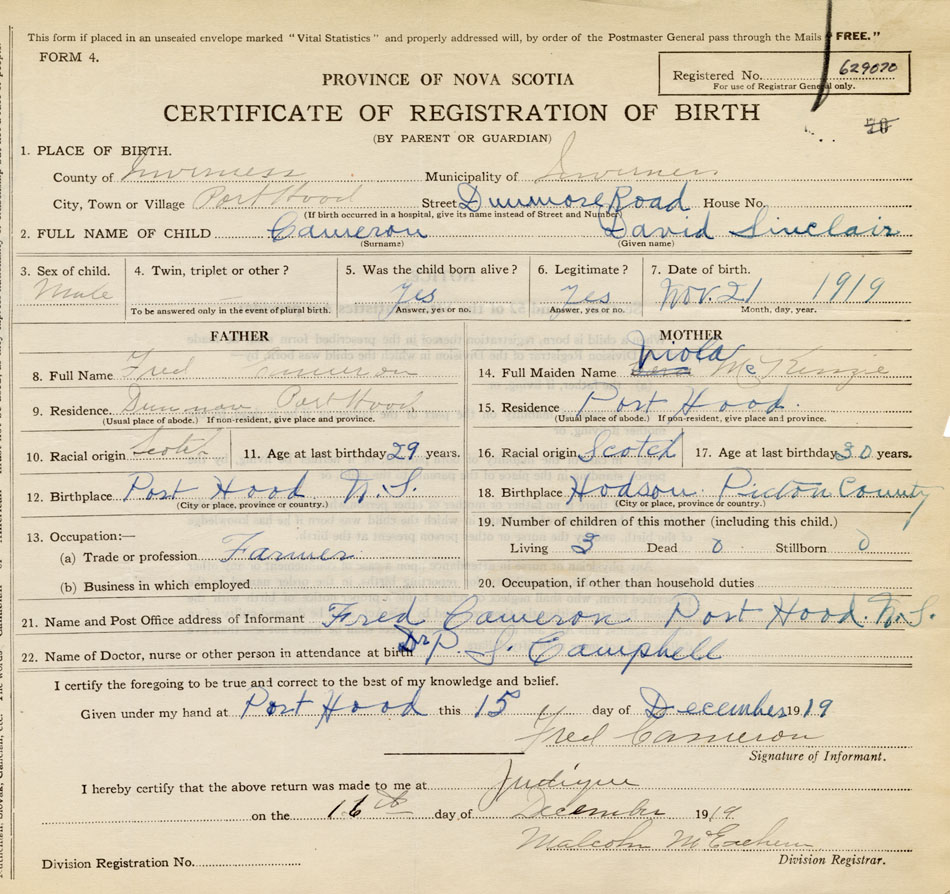 This form if placed in an unsealed envelope marked "Vital Statistics" and properly addressed will, by order of the Postmaster General pass through the Mails "FREE."
FORM 4.
PROVINCE OF NOVA SCOTIA
Registered No. 629070
For use of Registrar General only.
CERTIFICATE OF REGISTRATION OF BIRTH
(BY PARENT OR GUARDIAN)
1. PLACE OF BIRTH.
County of Inverness Municipality of Inverness
City, Town or Village Port Hood Street Dunmore Road House No.
(If birth occurred in a hospital, give its name instead of Street and Number)
2. FULL NAME OF CHILD Cameron David Sinclair
(Surname) (Given name)
3. Sex of child. 4. Twin, triplet or other? 5. Was the child born alive? 6. Legitimate? 7. Date of birth.
Male Yes Yes Nov. 21 1919
To be answered only in the event of plural birth. Answer, yes or no. Answer, yes or no. Month, day, year.
FATHER MOTHER
Viola
8. Full Name Fred Cameron 14. Full Maiden Name McKenzie
9. Residence. Port Hood 15. Residence Port Hood.
(Usual place of abode.) If non-resident, give place and province. (Usual place of abode.) If non-resident, give place and province.
10. Racial origin Scotch 11. Age at last birthday 29 years. 16. Racial origin Scotch 17. Age at last birthday 30 years.
12. Birthplace Port Hood N.S. 18. Birthplace Hodson Pictou County
(City or place, province or country.) (City or place, province or country.)
13. Occupation:— 19. Number of children of this mother (including this child.)
(a) Trade or profession Farmer Living 3 Dead 0 Stillborn 0
(b) Business in which employed 20. Occupation, if other than household duties
21. Name and Post Office address of Informant Fred Cameron Port Hood. N.S.
22. Name of Doctor, nurse or other person in attendance at birth Dr P. S. Campbell
I certify the foregoing to be true and correct to the best of my knowledge and belief.
Given under my hand at Port Hood this 15 day of December 1919
Fred Cameron
Signature of Informant.
I hereby certify that the above return was made to me at Judique
on the 16th day of December 1919.
Malcolm McEachern
Division Registration No. Division Registrar.